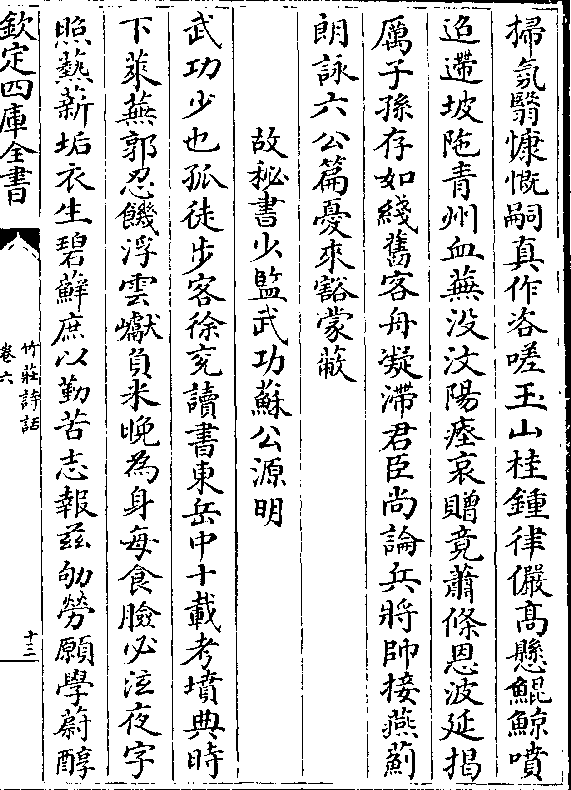 掃氛翳慷慨嗣真作咨嗟玉山桂鍾律儼高懸鯤鯨噴
迢遰坡陁青州血蕪没汶陽瘞哀贈竟蕭條恩波延揭
厲子孫存如綫舊客舟凝滯君臣尚論兵將帥接燕薊
朗詠六公篇憂來豁蒙蔽
故秘書少監武功蘇公源明
武功少也孤徒步客徐兖讀書東岳中十載考墳典時
下萊蕪郭忍饑浮雲巘負米晚為身每食臉必泫夜字
照爇薪垢衣生碧蘚庶以勤苦志報兹劬勞願學蔚醇
欽定四庫全書
竹莊詩話
卷六
十三